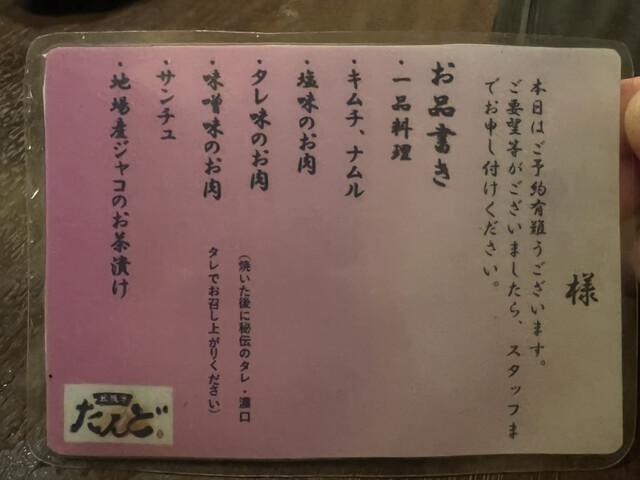 様
本日はご予約有難うございます。
ご要望等がございましたら、スタッフま
でお申し付けください。
お品書き
・一品料理
・キムチ、ナムル
・塩味のお肉
・タレ味のお肉
(焼いた後に秘伝のタレ・濃口
・味噌味のお肉
タレでお召し上がりください)
・サンチュ
・地場産ジャコのお茶漬け
たんど